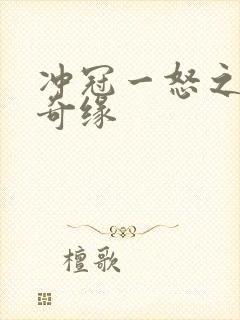 冲冠一怒之
奇缘
檀歌